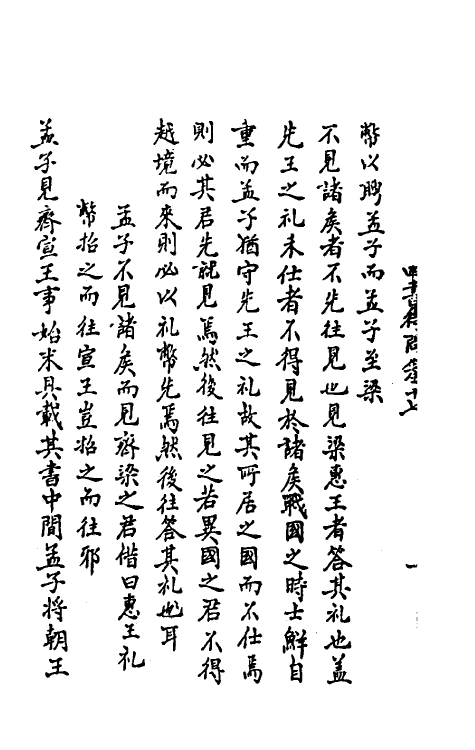 四書或問卷十七
一
幣以聘孟子而孟子至梁
不見諸矦者不先往見也見梁惠王者答其礼也盖
先王之礼未仕者不得見於諸矦戰國之時士鮮自
重而孟子猶守先王之礼故其所居之國而不仕焉
則必其君先就見焉然後往見之若異國之君不得
越境而來則必以礼幣先焉然後往答其礼耳
孟子不見諸矦而見齊梁之君偕曰惠王礼
幣招之而往宣王豈招之而往邪
孟子見齊宣王事始末具載其書中間孟子将朝王